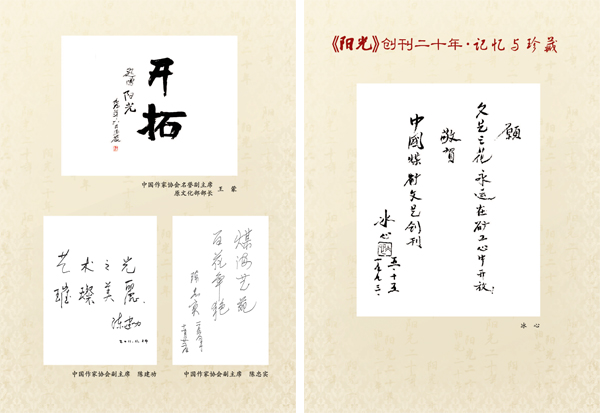 开拓
阳光
中国作家协会名誉副主席
原文化部部长 王蒙
艺术之光
璀璨美丽
陈建功
2011.11.14
中国作家协会副主席 陈建功
煤海艺苑
百花争艳
陈忠实
中国作家协会副主席 陈忠实
《阳光》创刊二十年·记忆与珍藏
愿
文艺之花永远在矿工心中开放
敬贺
中國煤矿文艺创刊
冰心
五·十五
一九九三·
冰心